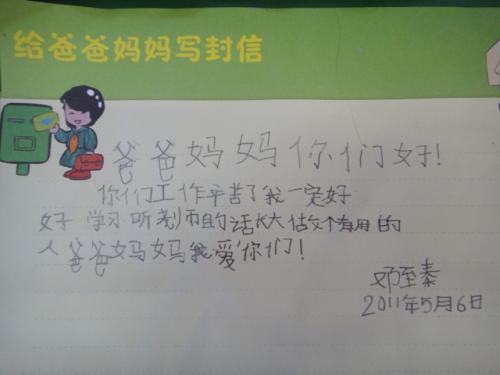 给爸爸妈妈写封信
爸爸妈妈你们好!
你们工作辛苦了我一定好
好学习听老师的话长大做个有用的
人爸爸妈妈我爱你们!
邓至秦
2011年5月6日